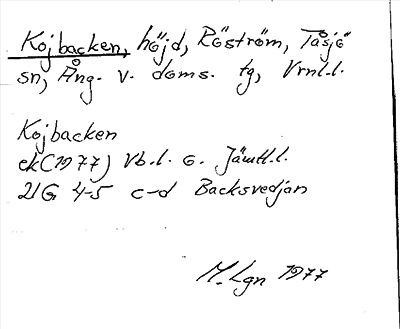 Kojbacken, höjd, Röström, Tåsjö
sn, Ång. v. doms. tg, Vrnl.l.
Kojbacken
ek (1977) Vb.l. o. Jämtl.l.
21G 4-5 c-d Backsvedjan
M. Lgn 1977